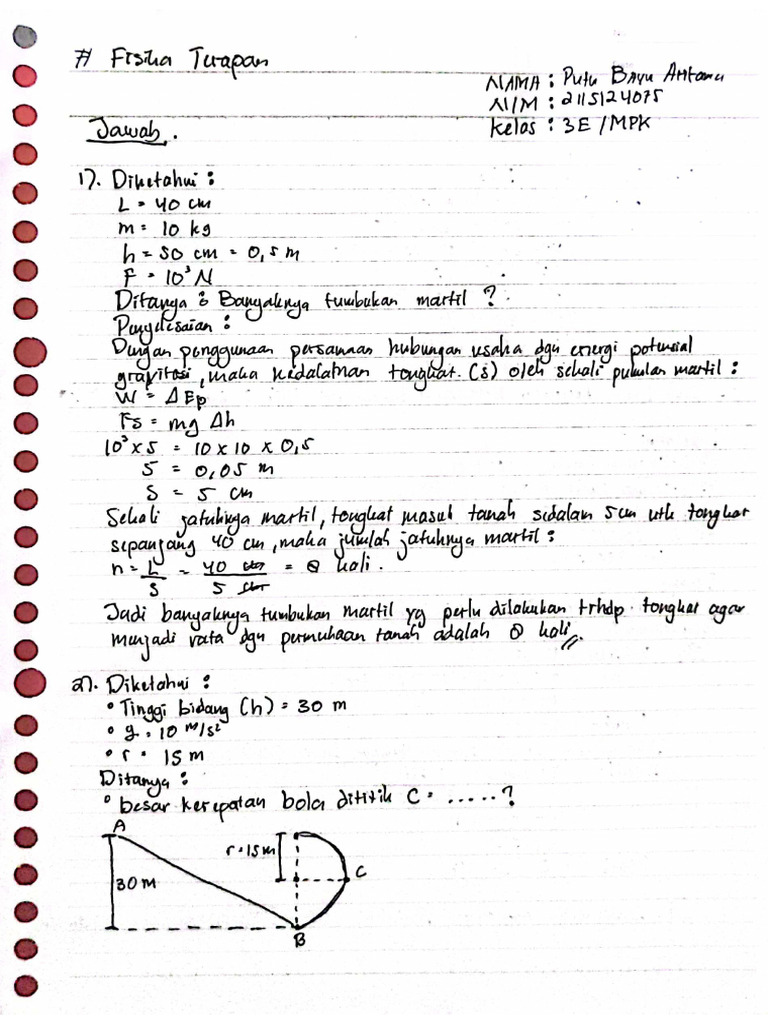 # Fisika Terapan
NAMA : Putu Bayu
NIM : 2115124075
Kelas : 3E / MPK
Jawab.
1). Diketahui :
L = 40 cm
m = 10 kg
h = 50 cm = 0,5 m
F = 10³ N
Ditanya : Banyaknya tumbukan martil ?
Penyelesaian :
Dengan penggunaan persamaan hubungan usaha dgn energi potensial
gravitasi, maka kedalaman tongkat (s) oleh sekali pukulan martil :
W = ΔEp
Fs = mg Δh
10³ x s = 10 x 10 x 0,5
s = 0,05 m
s = 5 cm
Sekali jatuhnya martil, tongkat masuk tanah sedalam 5cm utk tongkat
sepanjang 40 cm, maka jumlah jatuhnya martil :
n = L/s = 40 cm/5 cm = 8 kali.
Jadi banyaknya tumbukan martil yg perlu dilakukan trhdp tongkat agar
menjadi rata dgn permukaan tanah adalah 8 kali //
2). Diketahui :
° Tinggi bidang (h) = 30 m
° g = 10 m/s²
° r = 15 m
Ditanya :
° besar kecepatan bola dititik C = ..... ?
A
r = 15 m
C
30 M
B